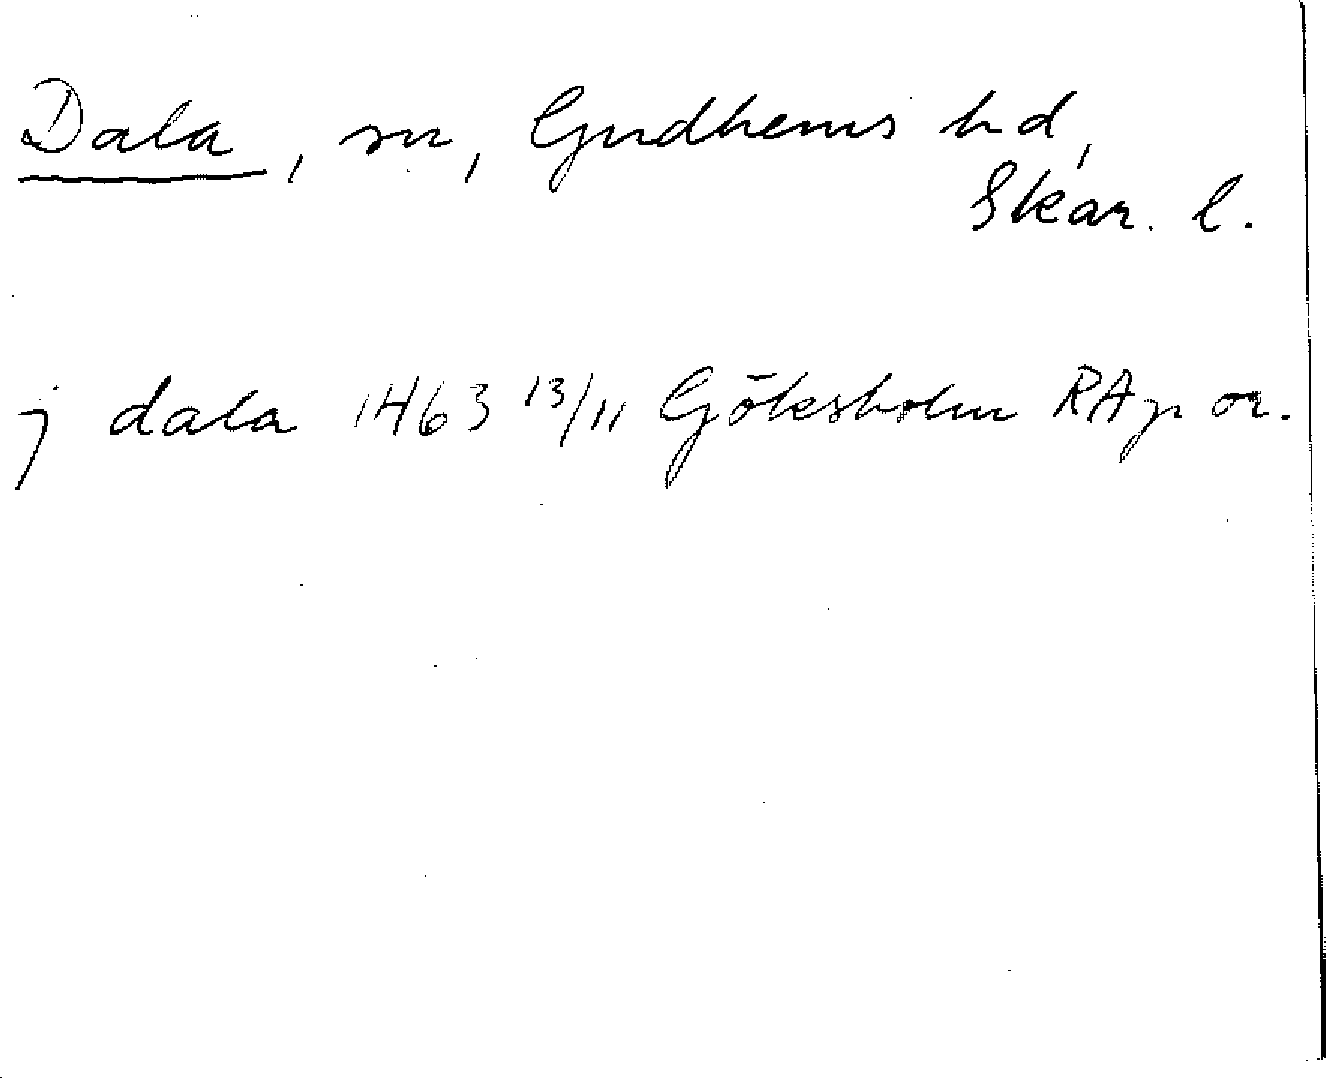 Dala, sn, Gudhems hd,
Skar. l.
j dala 1463 13/11 Göksholm RAp or.